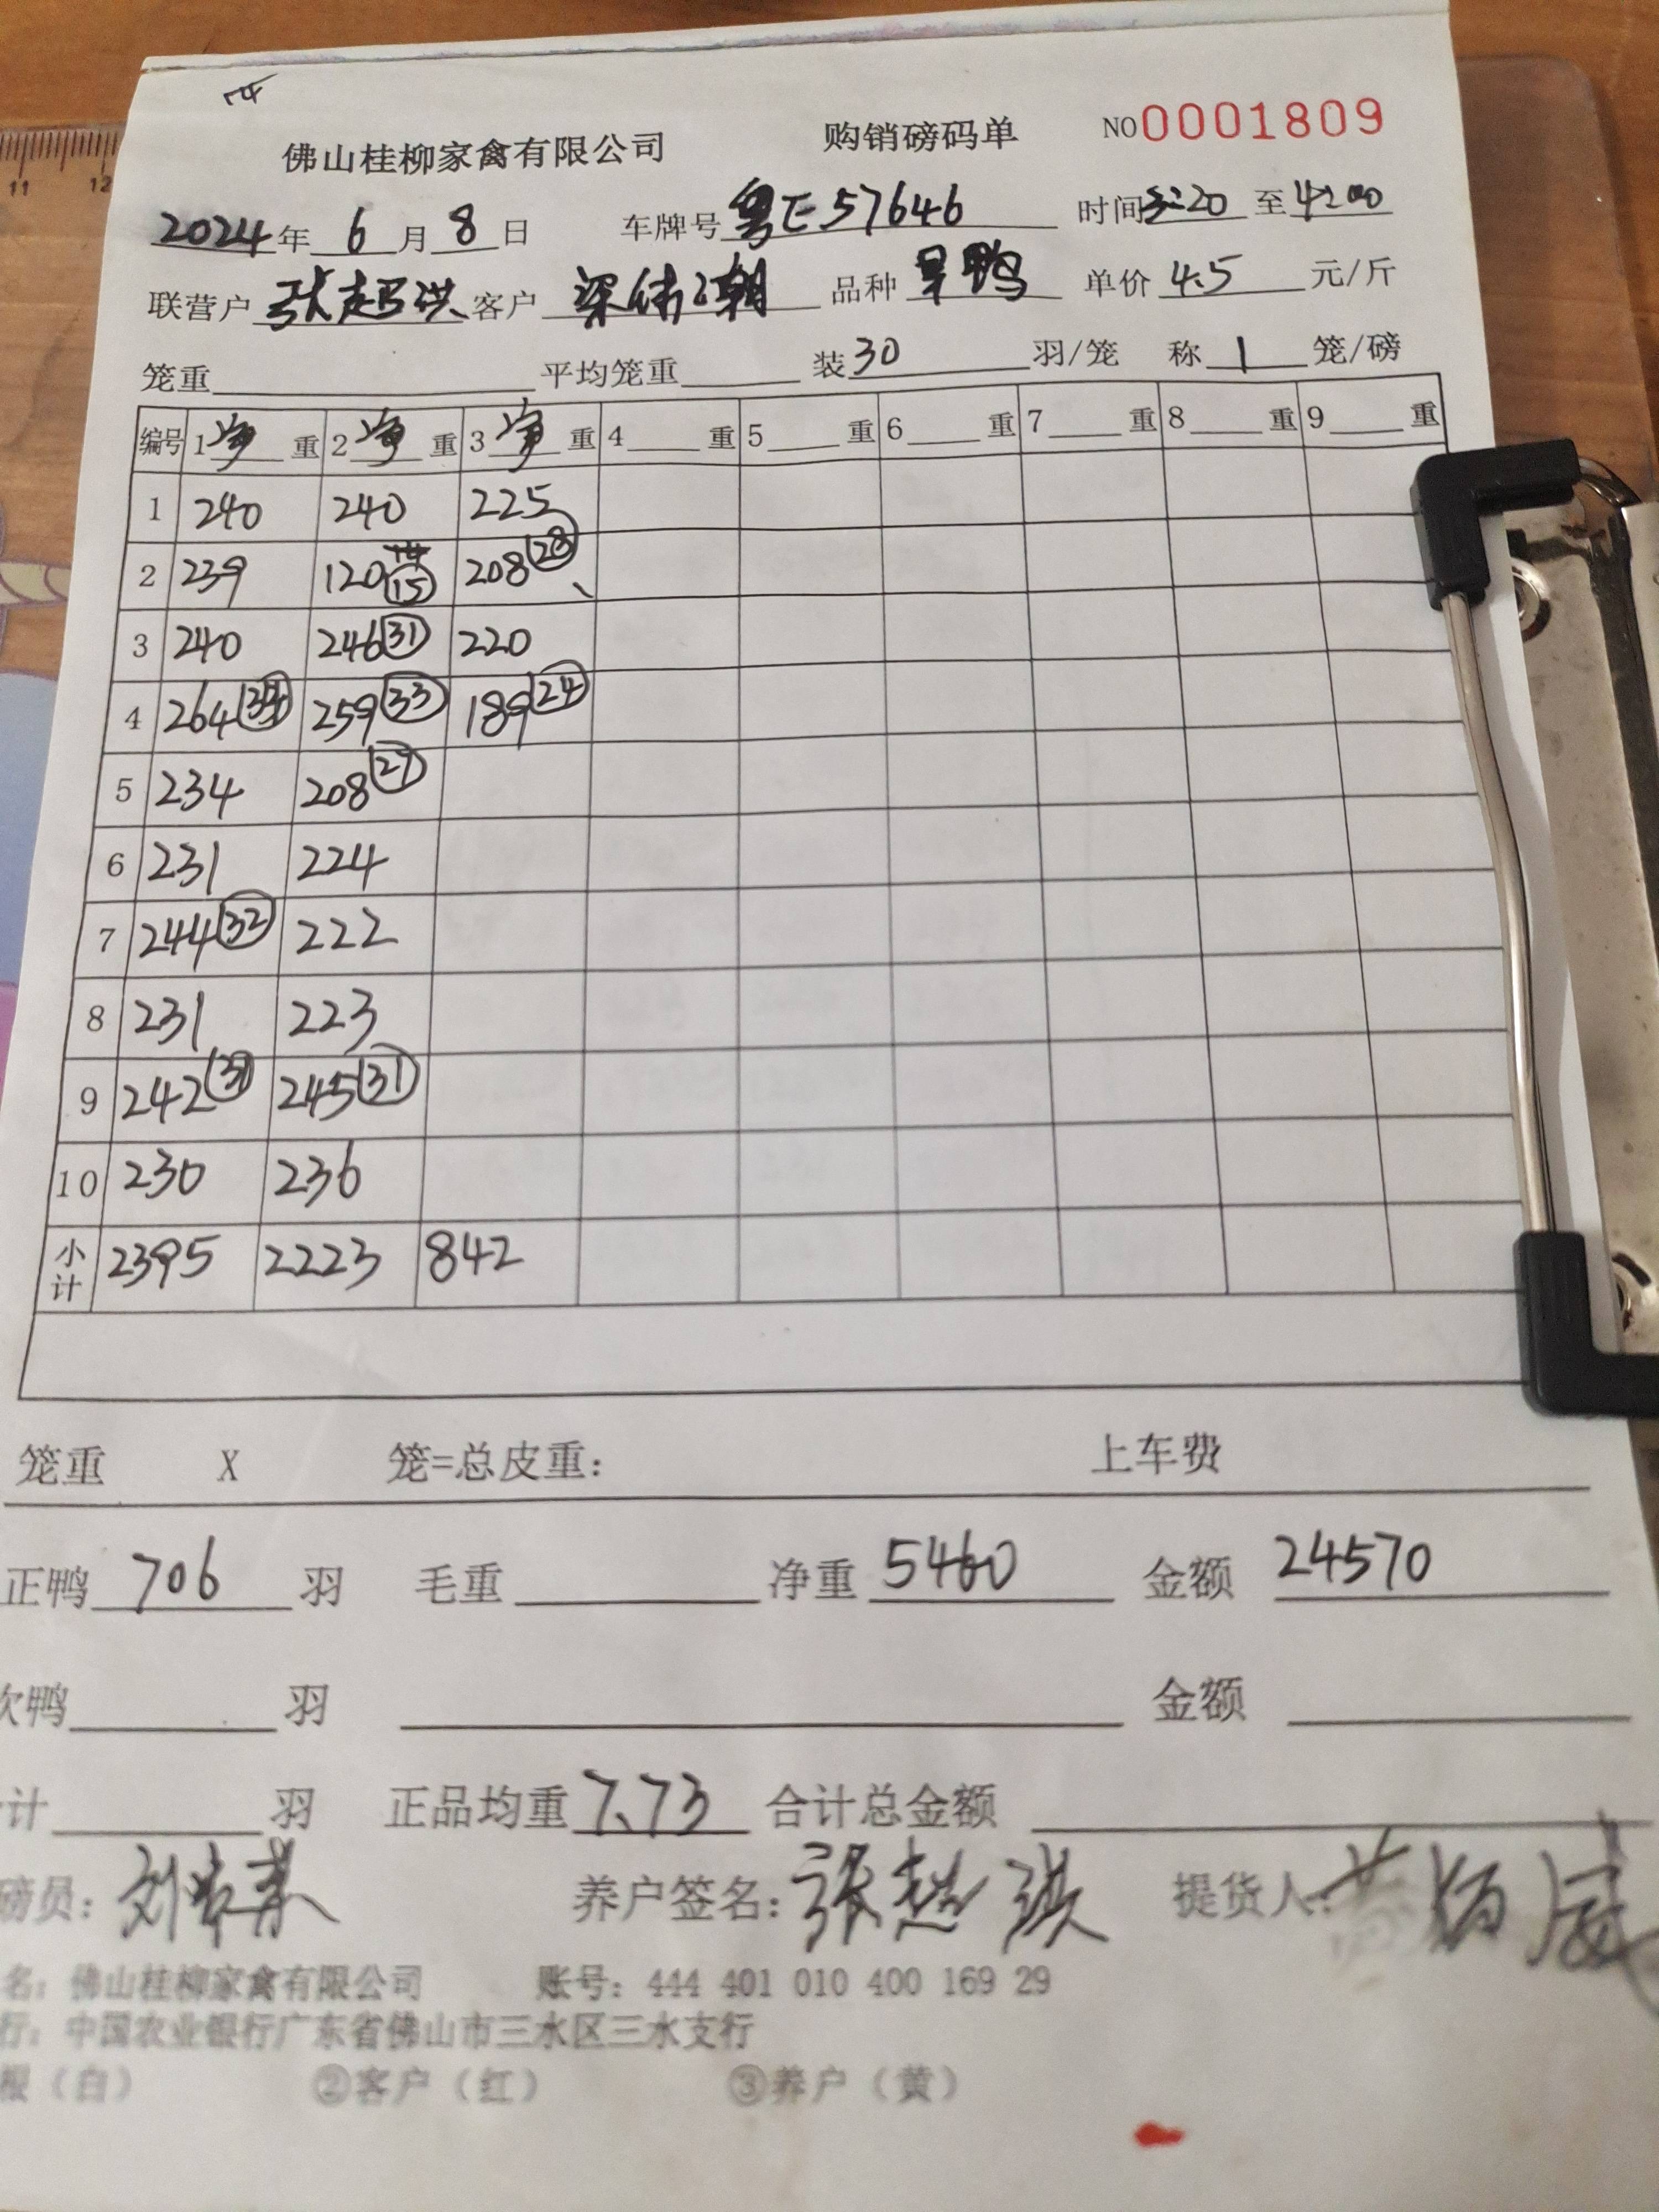 11 12
佛山桂柳家禽有限公司 购销磅码单 NO 0001809
2024年 6 月 8 日 车牌号 粤E57646 时间 3:20 至 4:00
联营户 张超洪 客户 梁伟潮 品种 旱鸭 单价 4.5 元/斤
笼重 平均笼重 装 30 羽/笼 称 1 笼/磅
编号 1 净 重 2 净 重 3 净 重 4 重 5 重 6 重 7 重 8 重 9 重
1 240 240 225
2 239 120 (15) 208 (28)
3 240 246 (31) 220
4 264 259 (33) 189 (24)
5 234 208 (27)
6 231 224
7 244 (32) 222
8 231 223
9 242 245 (31)
10 230 236
小计 2395 2223 842
笼重 X 笼=总皮重: 上车费
正鸭 706 羽 毛重 净重 5460 金额 24570
次鸭 羽 金额
计 羽 正品均重 7.73 合计总金额
磅员: 养户签名: 张超洪 提货人:
名: 佛山桂柳家禽有限公司 账号: 444 401 010 400 169 29
行: 中国农业银行广东省佛山市三水区三水支行
根（白） ②客户（红） ③养户（黄）